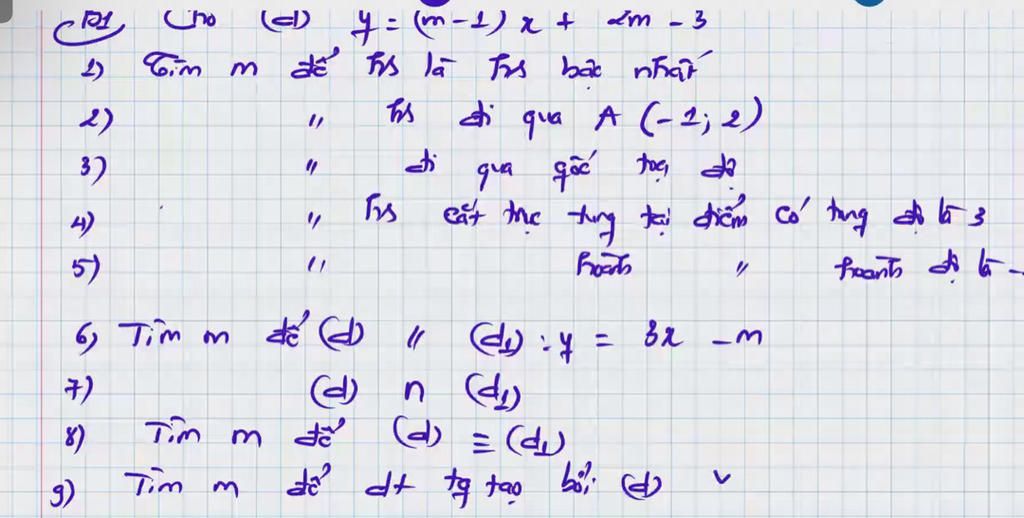 B1 Cho (d) y = (m-1)x + 2m - 3
1) Tìm m để hs là hs bậc nhất
2) " hs đi qua A (-1; 2)
3) " đi qua gốc toạ độ
4) " hs cắt trục tung tại điểm có tung độ là 3
5) " hoành " hoành độ là -
6) Tìm m để (d) // (d1) : y = 3x - m
7) (d) ∩ (d1)
8) Tìm m để (d) ≡ (d1)
9) Tìm m để dt tg tạo bởi (d) v